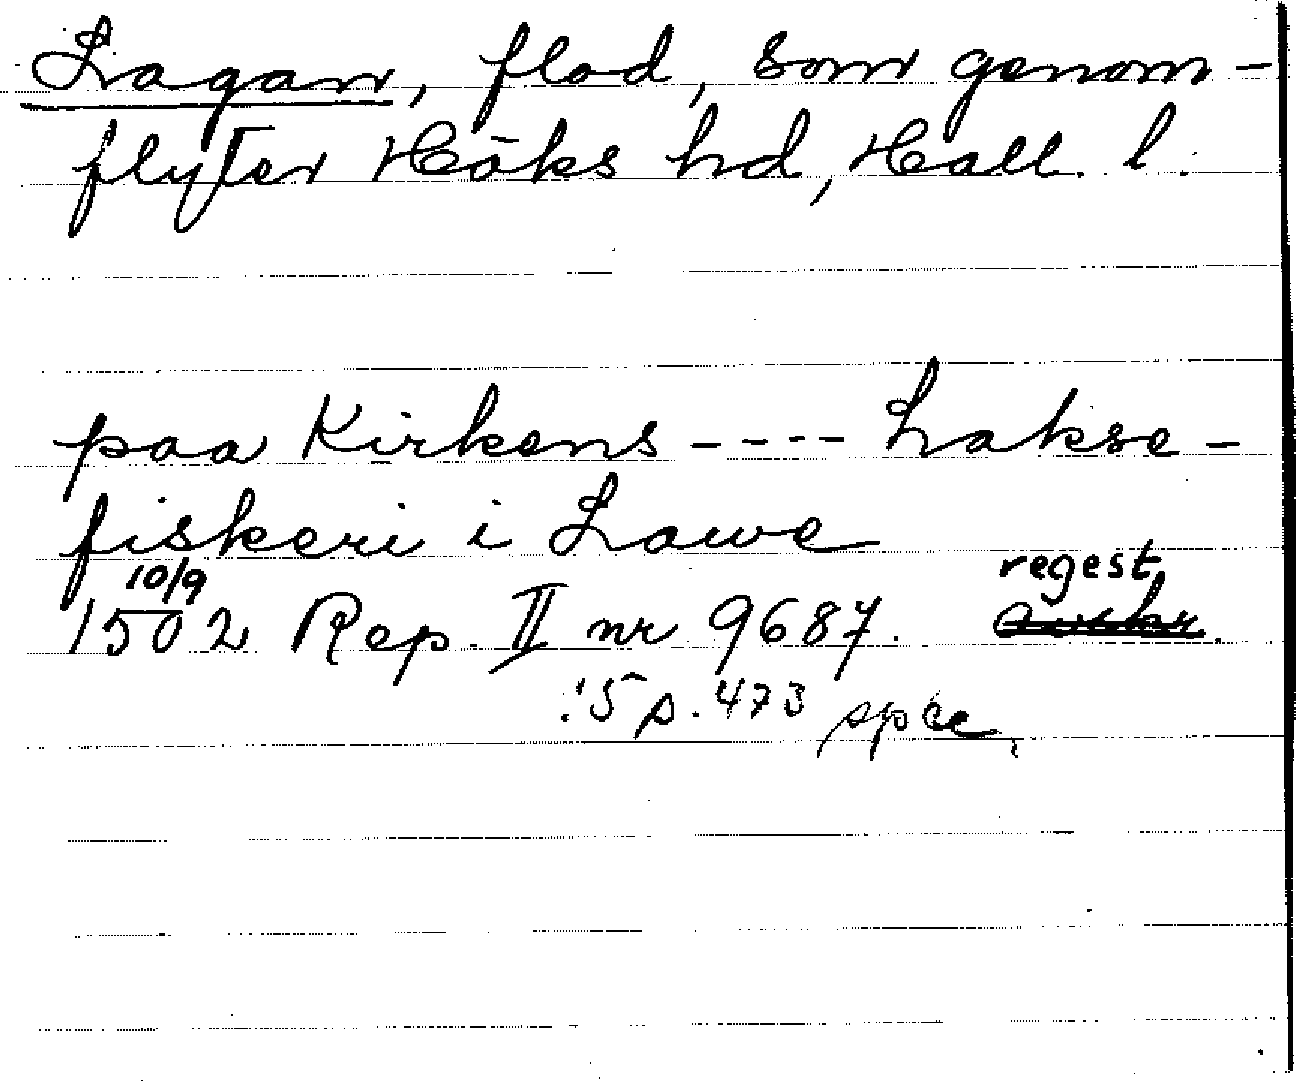 Lagan, flod, som genom-
flyter Höks hd, Hall. l.
paa Kirkens ---- Lakse-
fiskeri i Lawe
10/9 regest
1502 Rep. II nr 9687.
:5 p. 473